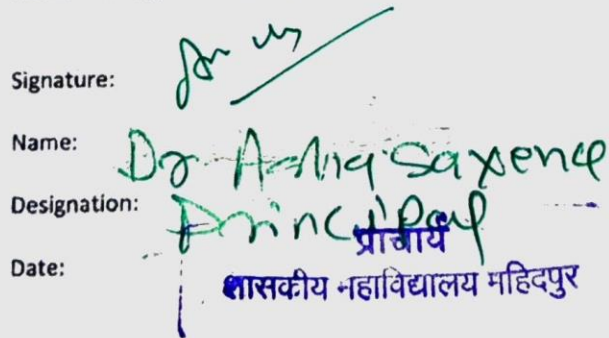 Signature:
Name: Dr Asha Saxena
Designation: Principal
प्राचार्य
Date:
शासकीय महाविद्यालय महिदपुर